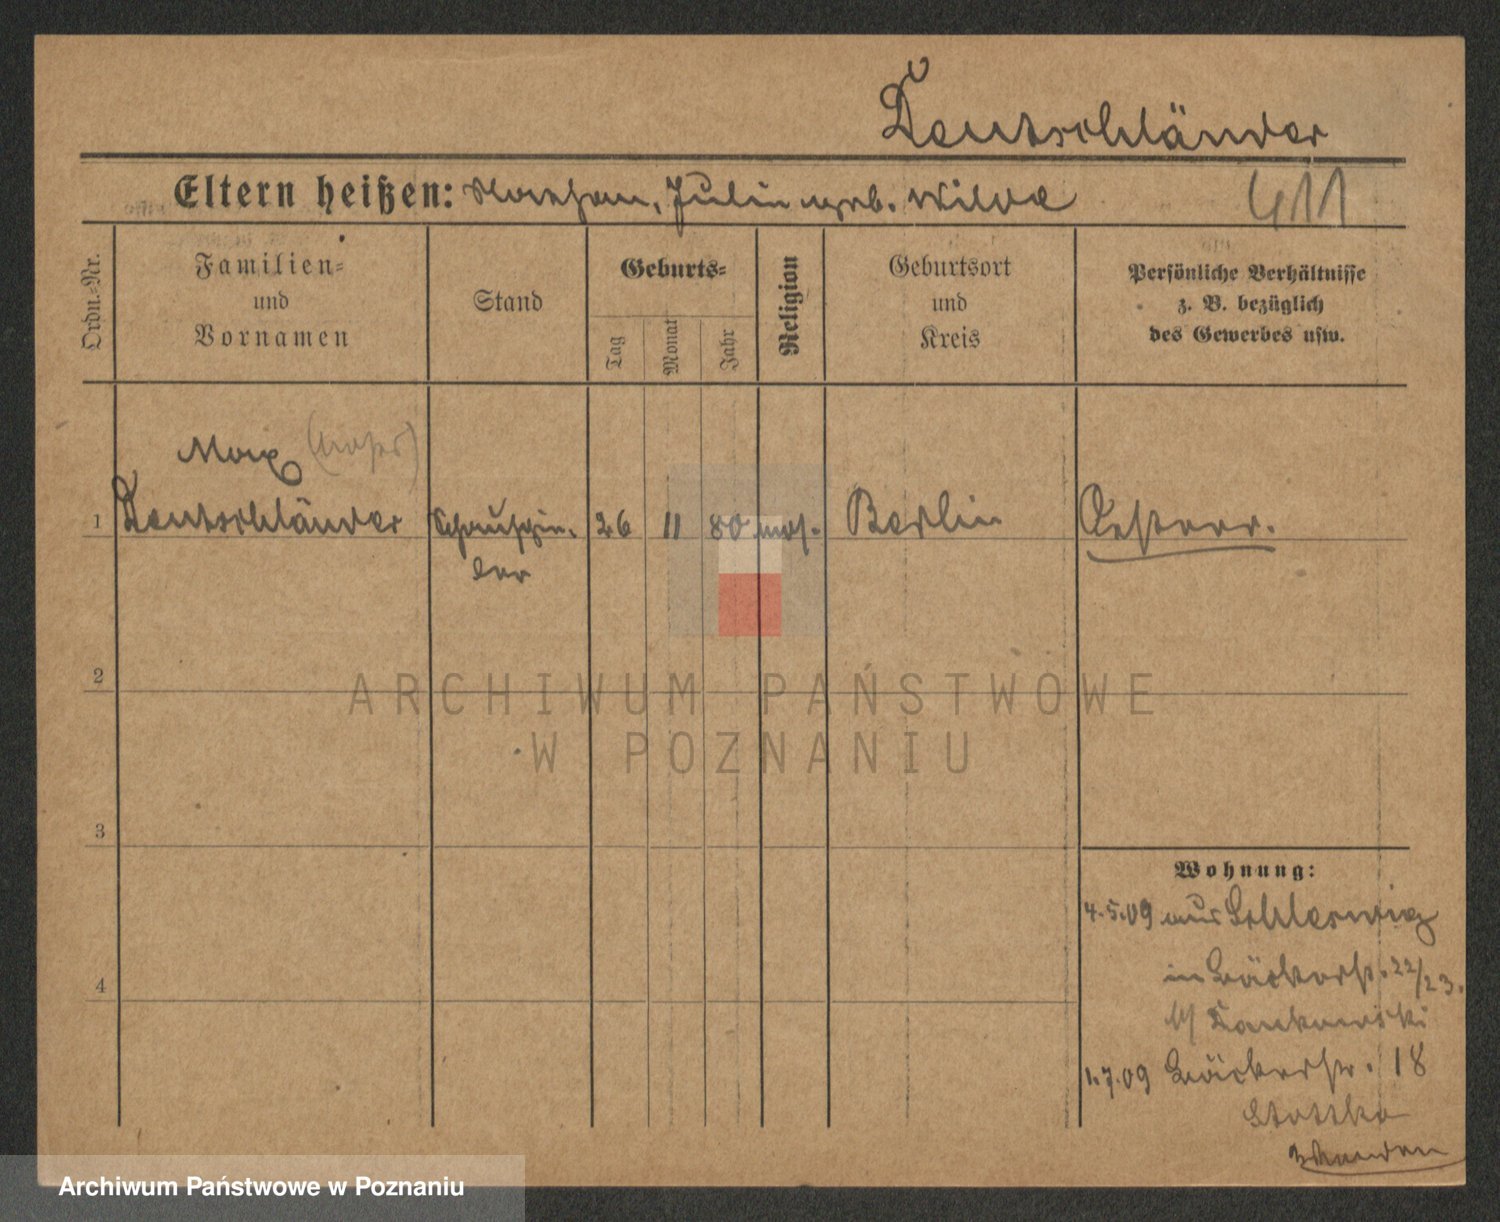 Deutschländer
Eltern heißen: Nathan, Julie geb. Wilde 411
Ordn.-Nr.
Familien-
und
Vornamen
Stand
Geburts-
Tag
Monat
Jahr
Religion
Geburtsort
und
Kreis
Persönliche Verhältnisse
z. B. bezüglich
des Gewerbes usw.
Max
1 Deutschländer Schauspie- 26 11 80 mos. Berlin Oesterr.
ler
2
3
4
Wohnung:
4.5.09 aus Schleswig
in Bäckerstr. 22/23.
b/
1.7.09 Bäckerstr. 18
ARCHIWUM PAŃSTWOWE
W POZNANIU
Archiwum Państwowe w Poznaniu